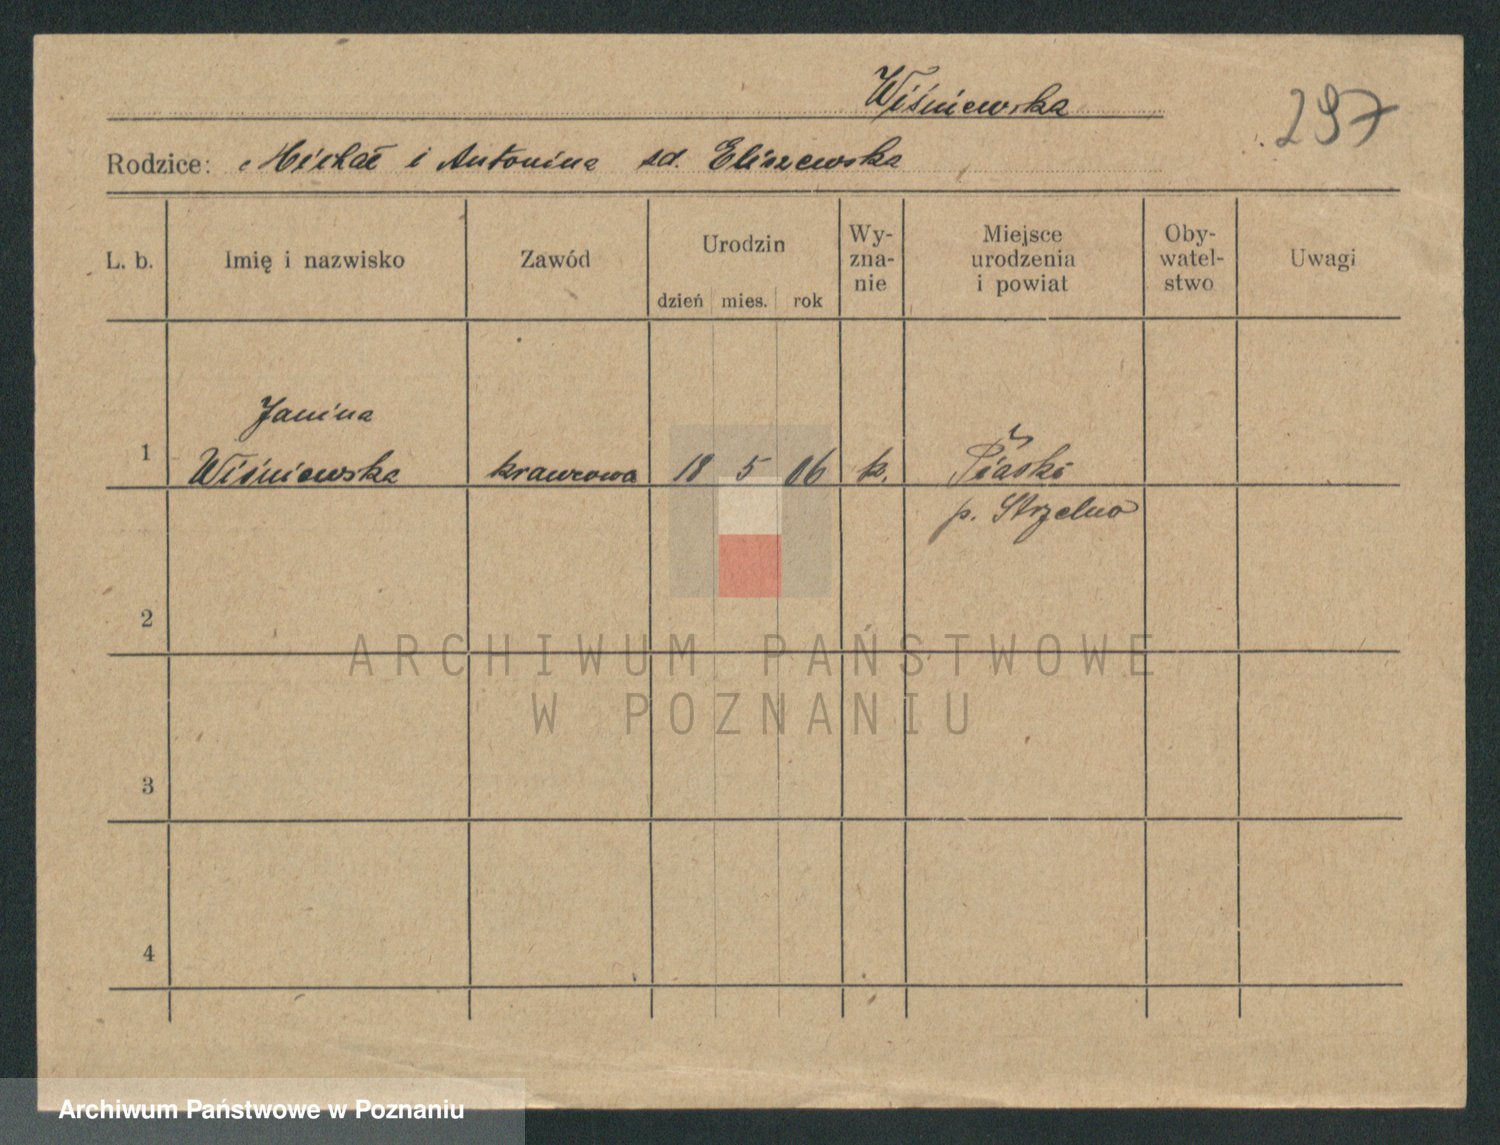 Wiśniewska
297
Rodzice: Michał i Antonina zd. Eliszewska
L. b. Imię i nazwisko Zawód Urodzin dzień mies. rok Wy-zna-nie Miejsce urodzenia i powiat Oby-watel-stwo Uwagi
Janina
1 Wiśniewska krawcowa 18 5 06 k. Piaski
p. Strzelno
2
3
4
ARCHIWUM PAŃSTWOWE
W POZNANIU
Archiwum Państwowe w Poznaniu